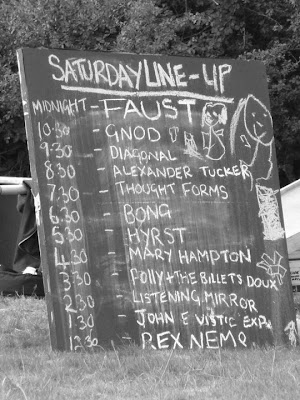 SATURDAY LINE-UP
MIDNIGHT - FAUST
10.30 - GNOD
9.30 - DIAGONAL
8.30 - ALEXANDER TUCKER
7.30 - THOUGHT FORMS
6.30 - BONG
5.30 - HYRST
4.30 - MARY HAMPTON
3.30 - POLLY + THE BILLETS DOUX
2.30 - LISTENING MIRROR
1.30 - JOHN E VISTIC EXP
12.30 - REX NEMO